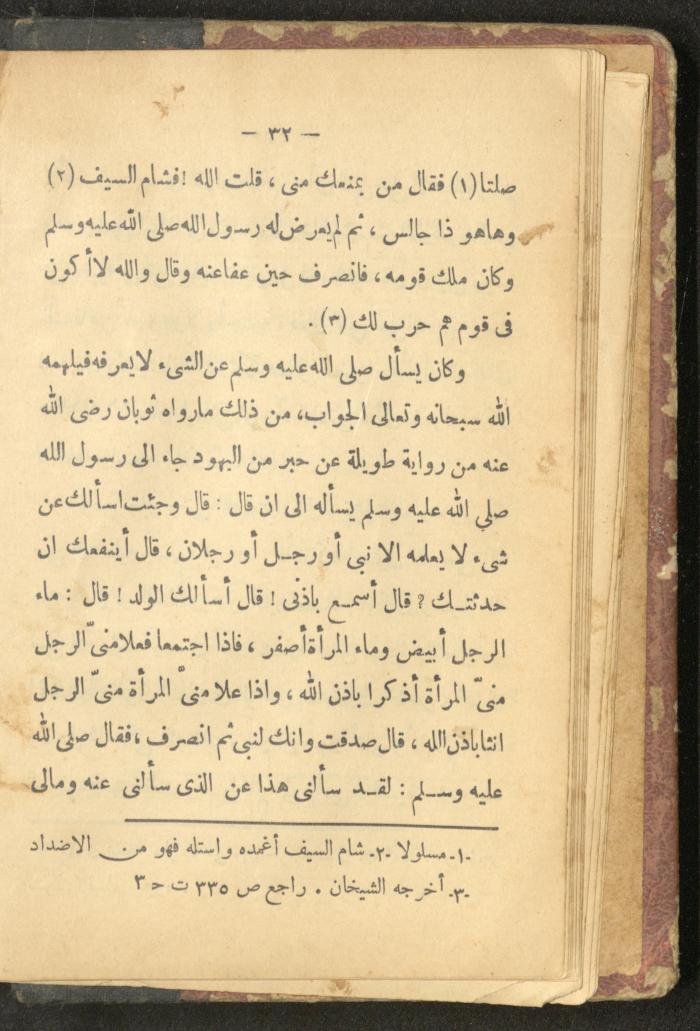 — ٣٢ —
صلتا(١) فقال من يمنعك منى ، قلت الله !فشام السيف (٢)
وهاهو ذا جالس ، ثم لم يعرض له رسول الله صلى الله عليه وسلم
وكان ملك قومه ، فانصرف حين عفاعنه وقال والله لاأ كون
فى قوم هم حرب لك (٣) .
وكان يسأل صلى الله عليه وسلم عن الشىء لايعرفه فيلهمه
الله سبحانه وتعالى الجواب، من ذلك مارواه ثوبان رضى الله
عنه من رواية طويلة عن حبر من اليهود جاء الى رسول الله
صلي الله عليه وسلم يسأله الى ان قال : قال وجئت اسألك عن
شىء لا يعلمه الا نبى أو رجـل أو رجلان ، قال أينفعك ان
حدثتـك ؟ قال أسمـع باذنى ! قال أسألك الولد ! قال : ماء
الرجل أبيض وماء المرأة أصفر ، فاذا اجتمعا فعلا منىّ الرجل
منىّ المرأة أذكرا باذن الله ، واذا علا منىّ المرأة منىّ الرجل
انثا باذن الله ، قال صدقت وانك لنبى ثم انصرف ، فقال صلى الله
عليه وسـلم : لقـد سألنى هذا عن الذى سألنى عنه ومالى
-١- مسلولا -٢- شام السيف أغمده واستله فهو من الاضداد
-٣- أخرجه الشيخان . راجع ص ٣٣٥ ت ح ٣